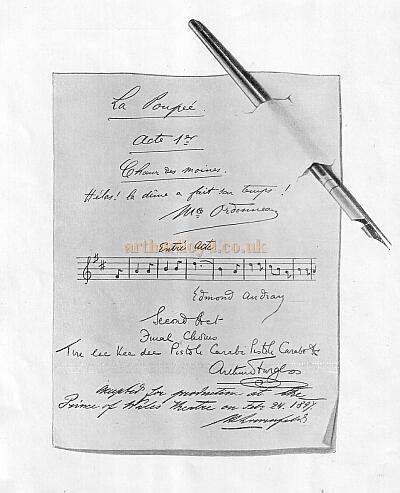 La Poupée.
Acte 1er
Chœur des moines.
Hélas! la dîme a fait son temps!
Mce Ordonneau
arthurlloyd.co.uk
Entr' Acte
Edmond Audran
Second Act
Final Chorus
Tire lee Kee dee Pistole Carabi Pistole Carabo &c
Arthur Sturgess
Accepted for production at the
Prince of Wales' Theatre on Feb 24. 1897.